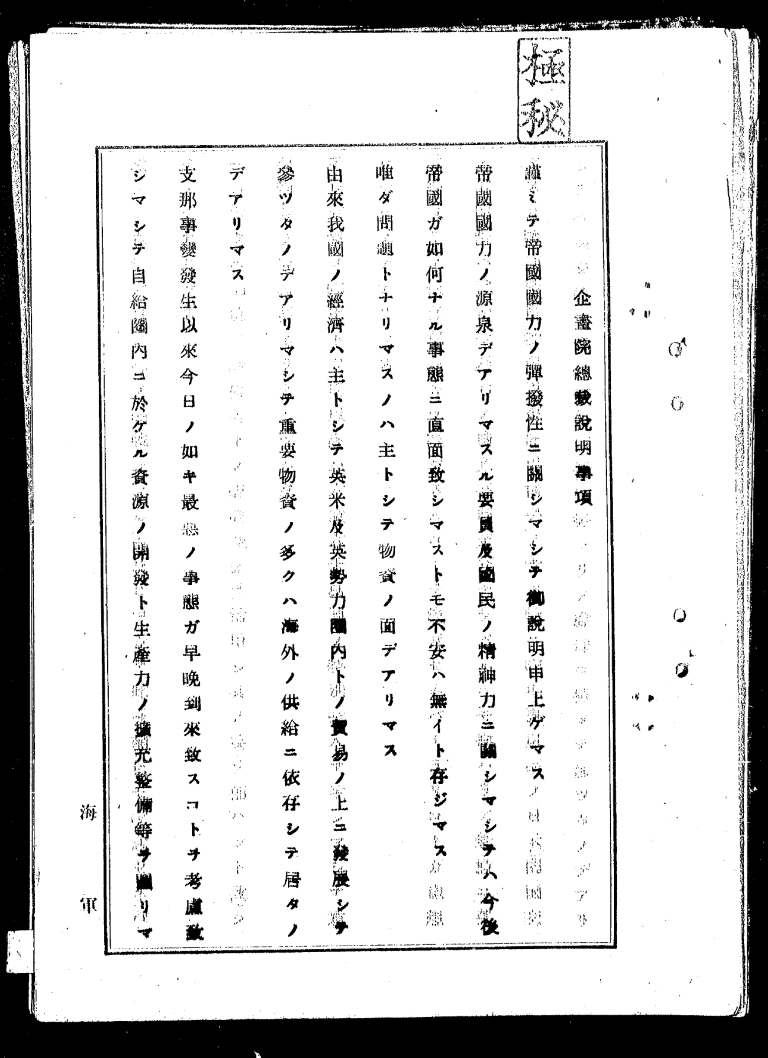 極秘
企畫院總裁說明事項
謹ミテ帝國國力ノ彈撥性ニ關シマシテ御說明申上ゲマス
帝國國力ノ源泉デアリマスル要員及國民ノ精神力ニ關シマシテハ今後
帝國ガ如何ナル事態ニ直面致シマストモ不安ハ無イト存ジマス
唯ダ問題トナリマスノハ主トシテ物資ノ面デアリマス
由來我國ノ經濟ハ主トシテ英米及英勢力圈內トノ貿易ノ上ニ發展シテ
參ツタノデアリマシテ重要物資ノ多クハ海外ノ供給ニ依存シテ居タノ
デアリマス
支那事變發生以來今日ノ如キ最惡ノ事態ガ早晚到來致スコトヲ考慮致
シマシテ自給圈內ニ於ケル資源ノ開發ト生產力ノ擴充整備等ヲ圖リマ
海軍